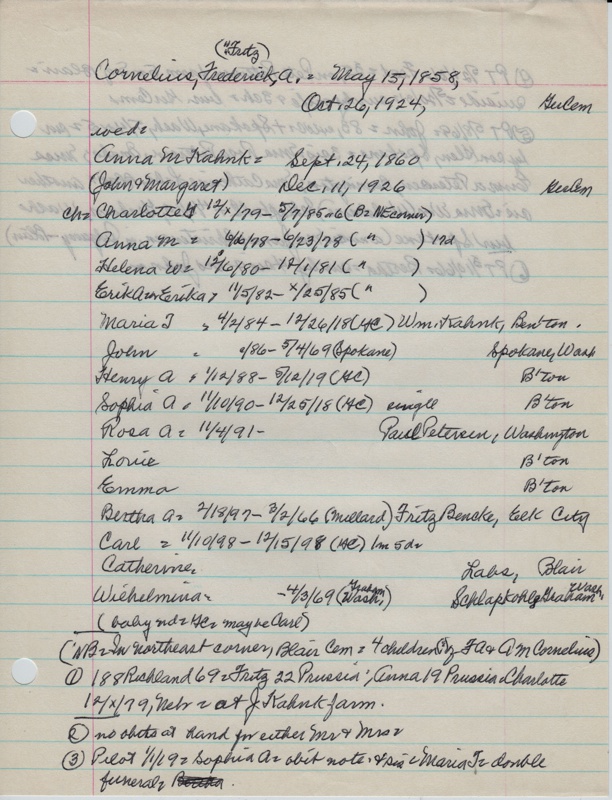 ("Fritz)
Cornelius, Frederick, A. = May 15, 1858,
Oct. 26, 1924, GerCem
wed =
Anna M Kahnk = Sept. 24, 1860
(John & Margaret) Dec. 11, 1926 GerCem
ch = Charlotte 12/x/79 - 5/7/85 (B = NE corner)
Anna M = 6/6/78 - 6/23/78 ( " ) 17d
Helena W = 12/6/80 - 12/1/81 ( " )
Erika or Erika, 11/5/82 - x/25/85 ( " )
Maria T , 4/2/84 - 12/26/18 (GC) Wm. Kahnk, Ben'ton.
John , /86 - 5/4/69 (Spokane) Spokane, Wash
Henry A , 1/12/88 - 5/12/19 (GC) B'ton
Sophia A , 11/10/90 - 12/25/18 (GC) single B'ton
Rosa A = 11/4/91 - Paul Petersen, Washington
Louie B'ton
Emma B'ton
Bertha A = 2/18/97 - 3/2/66 (Millard) Fritz Bencke, Elk City
Carl = 11/10/98 - 12/15/98 (GC) 1m 5d =
Catherine = Labs, Blair
Wilhelmina = - 4/3/69 (Graham Wash,) Schlapkohl, Graham Wash,
(baby nd = GC = maybe Carl)
(NB = In northeast corner, Blair Cem = 4 children by FA & AM Cornelius)
① 188 Richland 69 = Fritz 22 Prussia, Anna 19 Prussia, Charlotte
12/x/79, Nebr = at J. Kahnk farm.
② no obits at hand for either Mr & Mrs =
③ Pilot 1/1/19 = Sophia A = obit note & sis = Maria T = double
funeral =